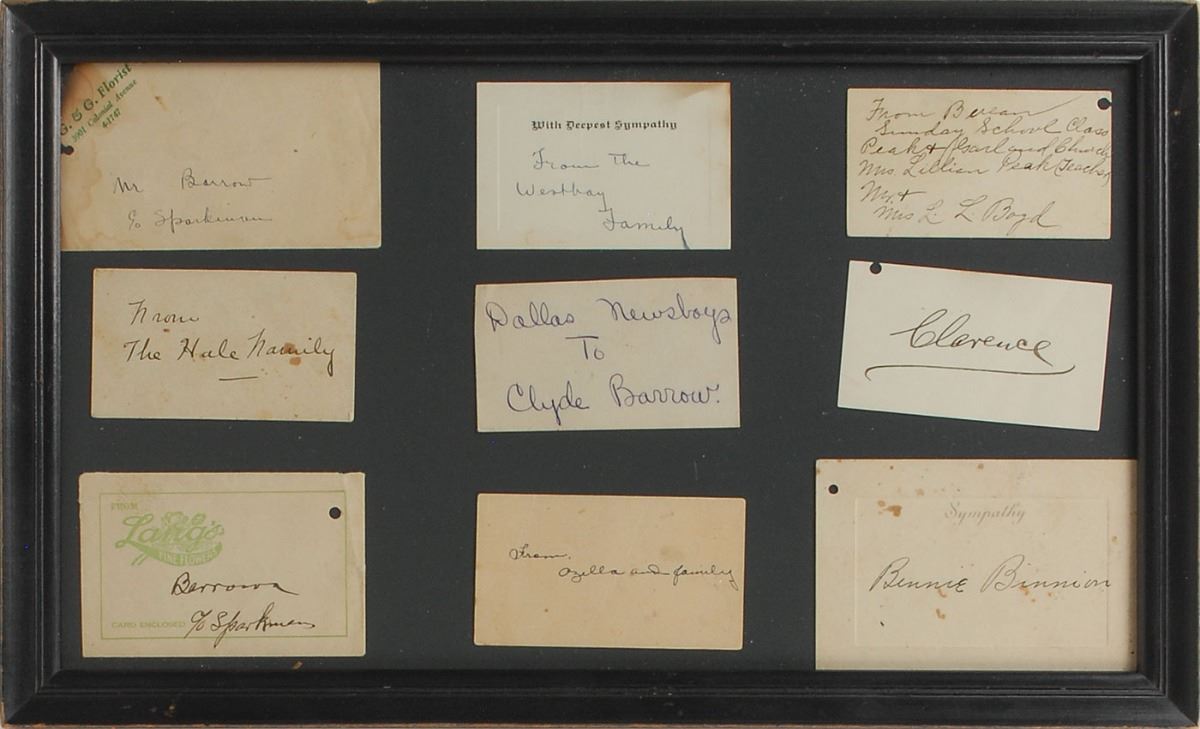 G. & G. Florist
3901 Colonial Avenue
4-1747
Mr Barrow
c/o Sparkman
With Deepest Sympathy
From The
Westbay
Family
From Berean
Sunday School Class
Peak & Garland Church
Mrs Lillian Peak Teacher
Mr. &
Mrs L. L. Boyd
From
The Hale Family
Dallas Newsboys
To
Clyde Barrow.
Clarence
FROM
Lang's
FINE FLOWERS
Barrows
CARD ENCLOSED c/o Sparkmans
From,
Ozella and family
Sympathy
Bennie Binnion